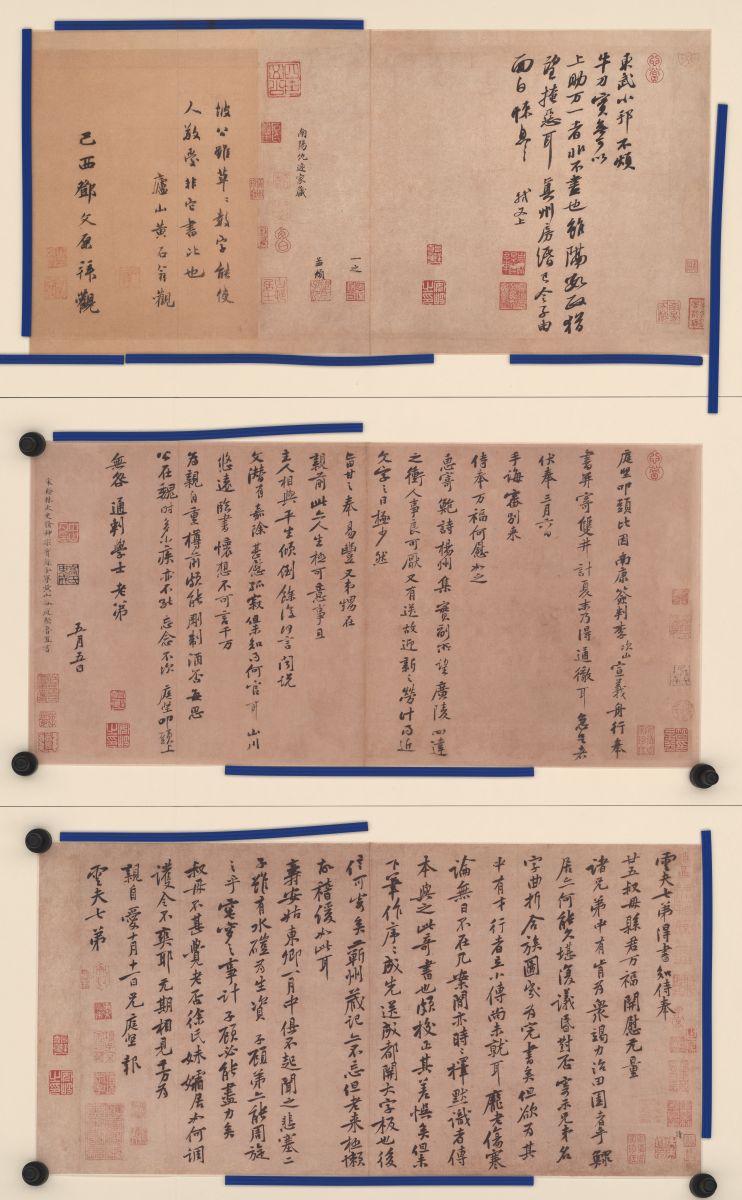 東武小邦不煩
牛刀實無可以
上助万一者非不盡也雖隔數政猶
望掩惡耳真州房緡已令子由
面白悚息 軾又上
南陽仇遠家藏
一之
坡公雖草〻數字能使
人敬愛非它書比也
廬山黃石翁觀
己酉鄧文原拜觀
庭堅叩頭比因南康簽判李次山宣義舟行奉
書并寄雙井計夏末乃得通徹耳急足者
伏奉三月六日
手誨審別來
侍奉万福何慰如之
惠寄鮑詩揚州集實副所望廣陵四達
之衝人事良可厭又有送故迎新之勞計得近
文字之日極少然
旨甘之奉易豐又弟甥在
親前此亦人生極可意事且
主人相與平生傾倒餘復何言聞說
文潛有嘉除甚慰孤寂但未知得何官耳山川
悠遠臨書懷想不可言千万
為親自重樽前頗能剛制酒否每思
公在魏時多小疾亦不能忘念不次庭堅叩頭上
無咎通判學士老弟
五月五日
雲夫七弟得書知侍奉
廿五叔母縣君万福開慰无量
諸兄弟中有肯為衆竭力治田園者乎鰥
居亦何能久堪復議昏對否寄示兄弟名
字曲折合族圖為完書矣但欲為其
中有才行者立小傳尚未就耳龐老傷寒
論無日不在几案間亦時〻擇默識者傳
本與之此奇書也頗校正其差悞矣但未
下筆作序〻成先送成都開大字板也後
信可寄矣蘄州藏記亦不忘但老來極懶
故稽緩如此耳
壽安姑東卿一月中俱不起聞之悲塞二
子雖有水磑為生資子顧弟亦能周旋
之乎人事計子顧必能盡力矣
叔母不甚覺老否徐氏妹孀居如何調
護令不爽耶元明期相見千万為
親自愛十月十一日兄庭堅報
雲夫七弟